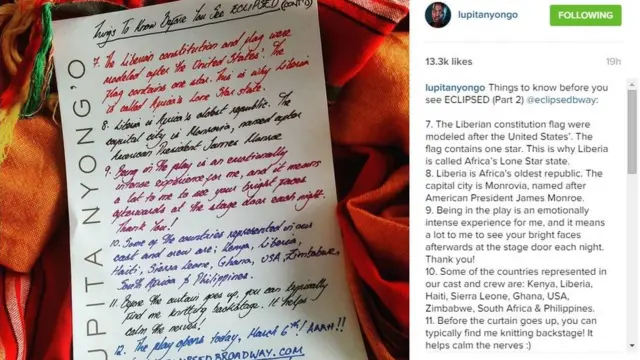 Things To Know Before You See ECLIPSED (cont'd)
LUPITA NYONG'O
7. The Liberian constitution and flag were
modeled after the United States'. The
flag contains one star. This is why Liberia
is called Africa's Lone Star state.
8. Liberia is Africa's oldest republic. The
capital city is Monrovia, named after
American President James Monroe
9. Being in the play is an emotionally
intense experience for me, and it means
a lot to me to see your bright faces
afterwards at the stage door each night.
Thank You!
10. Some of the countries represented in our
cast and crew are: Kenya, Liberia,
Haiti, Sierra Leone, Ghana, USA, Zimbabwe,
South Africa & Philippines.
11. Before the curtain goes up, you can typically
find me knitting backstage. It helps
calm the nerves!
12. The play opens today, March 6th! AAAH!!
ECLIPSEDBROADWAY.COM
lupitanyongo
FOLLOWING
13.3k likes
19h
lupitanyongo Things to know before
you see ECLIPSED (Part 2) @eclipsedbway:
7. The Liberian constitution flag were
modeled after the United States'. The
flag contains one star. This is why Liberia
is called Africa's Lone Star state.
8. Liberia is Africa's oldest republic. The
capital city is Monrovia, named after
American President James Monroe.
9. Being in the play is an emotionally
intense experience for me, and it means
a lot to me to see your bright faces
afterwards at the stage door each night.
Thank you!
10. Some of the countries represented in
our cast and crew are: Kenya, Liberia,
Haiti, Sierra Leone, Ghana, USA,
Zimbabwe, South Africa & Philippines.
11. Before the curtain goes up, you can
typically find me knitting backstage! It
helps calm the nerves :)